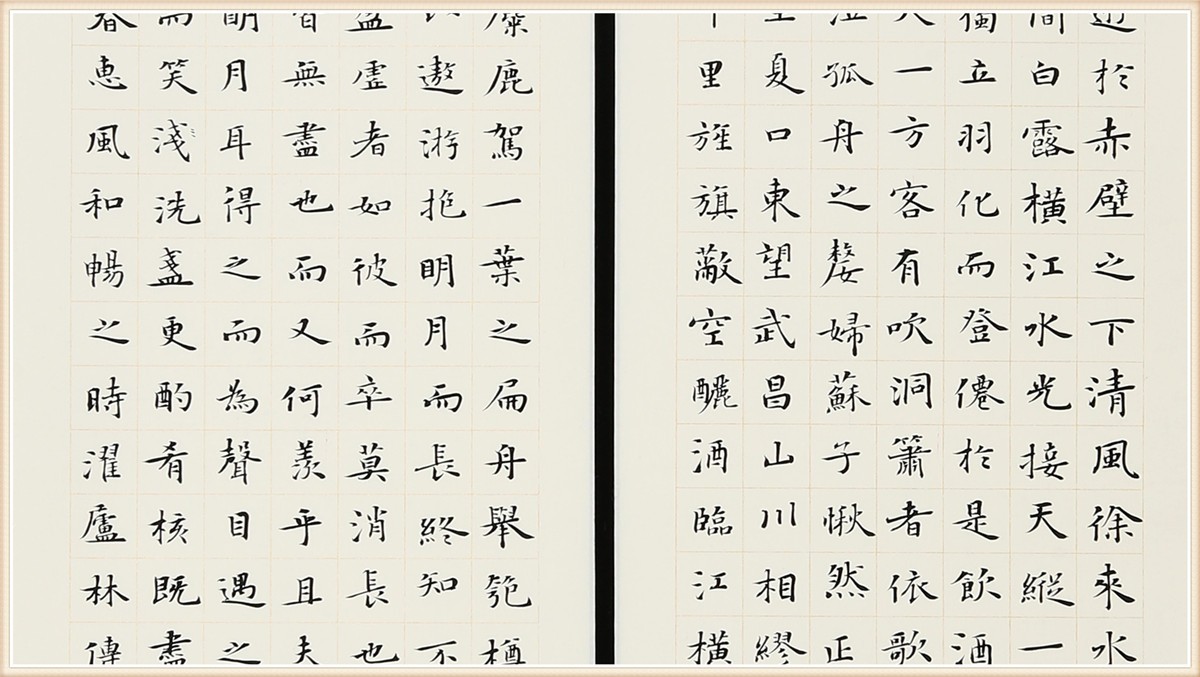 於赤壁之下清風徐來水
間白露橫江水光接天縱一
獨立羽化而登僊於是飲酒
人一方客有吹洞簫者依歌
泣孤舟之嫠婦蘇子愀然正
望夏口東望武昌山川相繆
千里旌旗蔽空釃酒臨江橫
麋鹿駕一葉之扁舟舉匏樽
以遨游抱明月而長終知不
盈虛者如彼而卒莫消長也
皆無盡也而又何羨乎且夫
明月耳得之而為聲目遇之
而笑淺洗盞更酌肴核既盡
春惠風和暢之時濯廬林傳